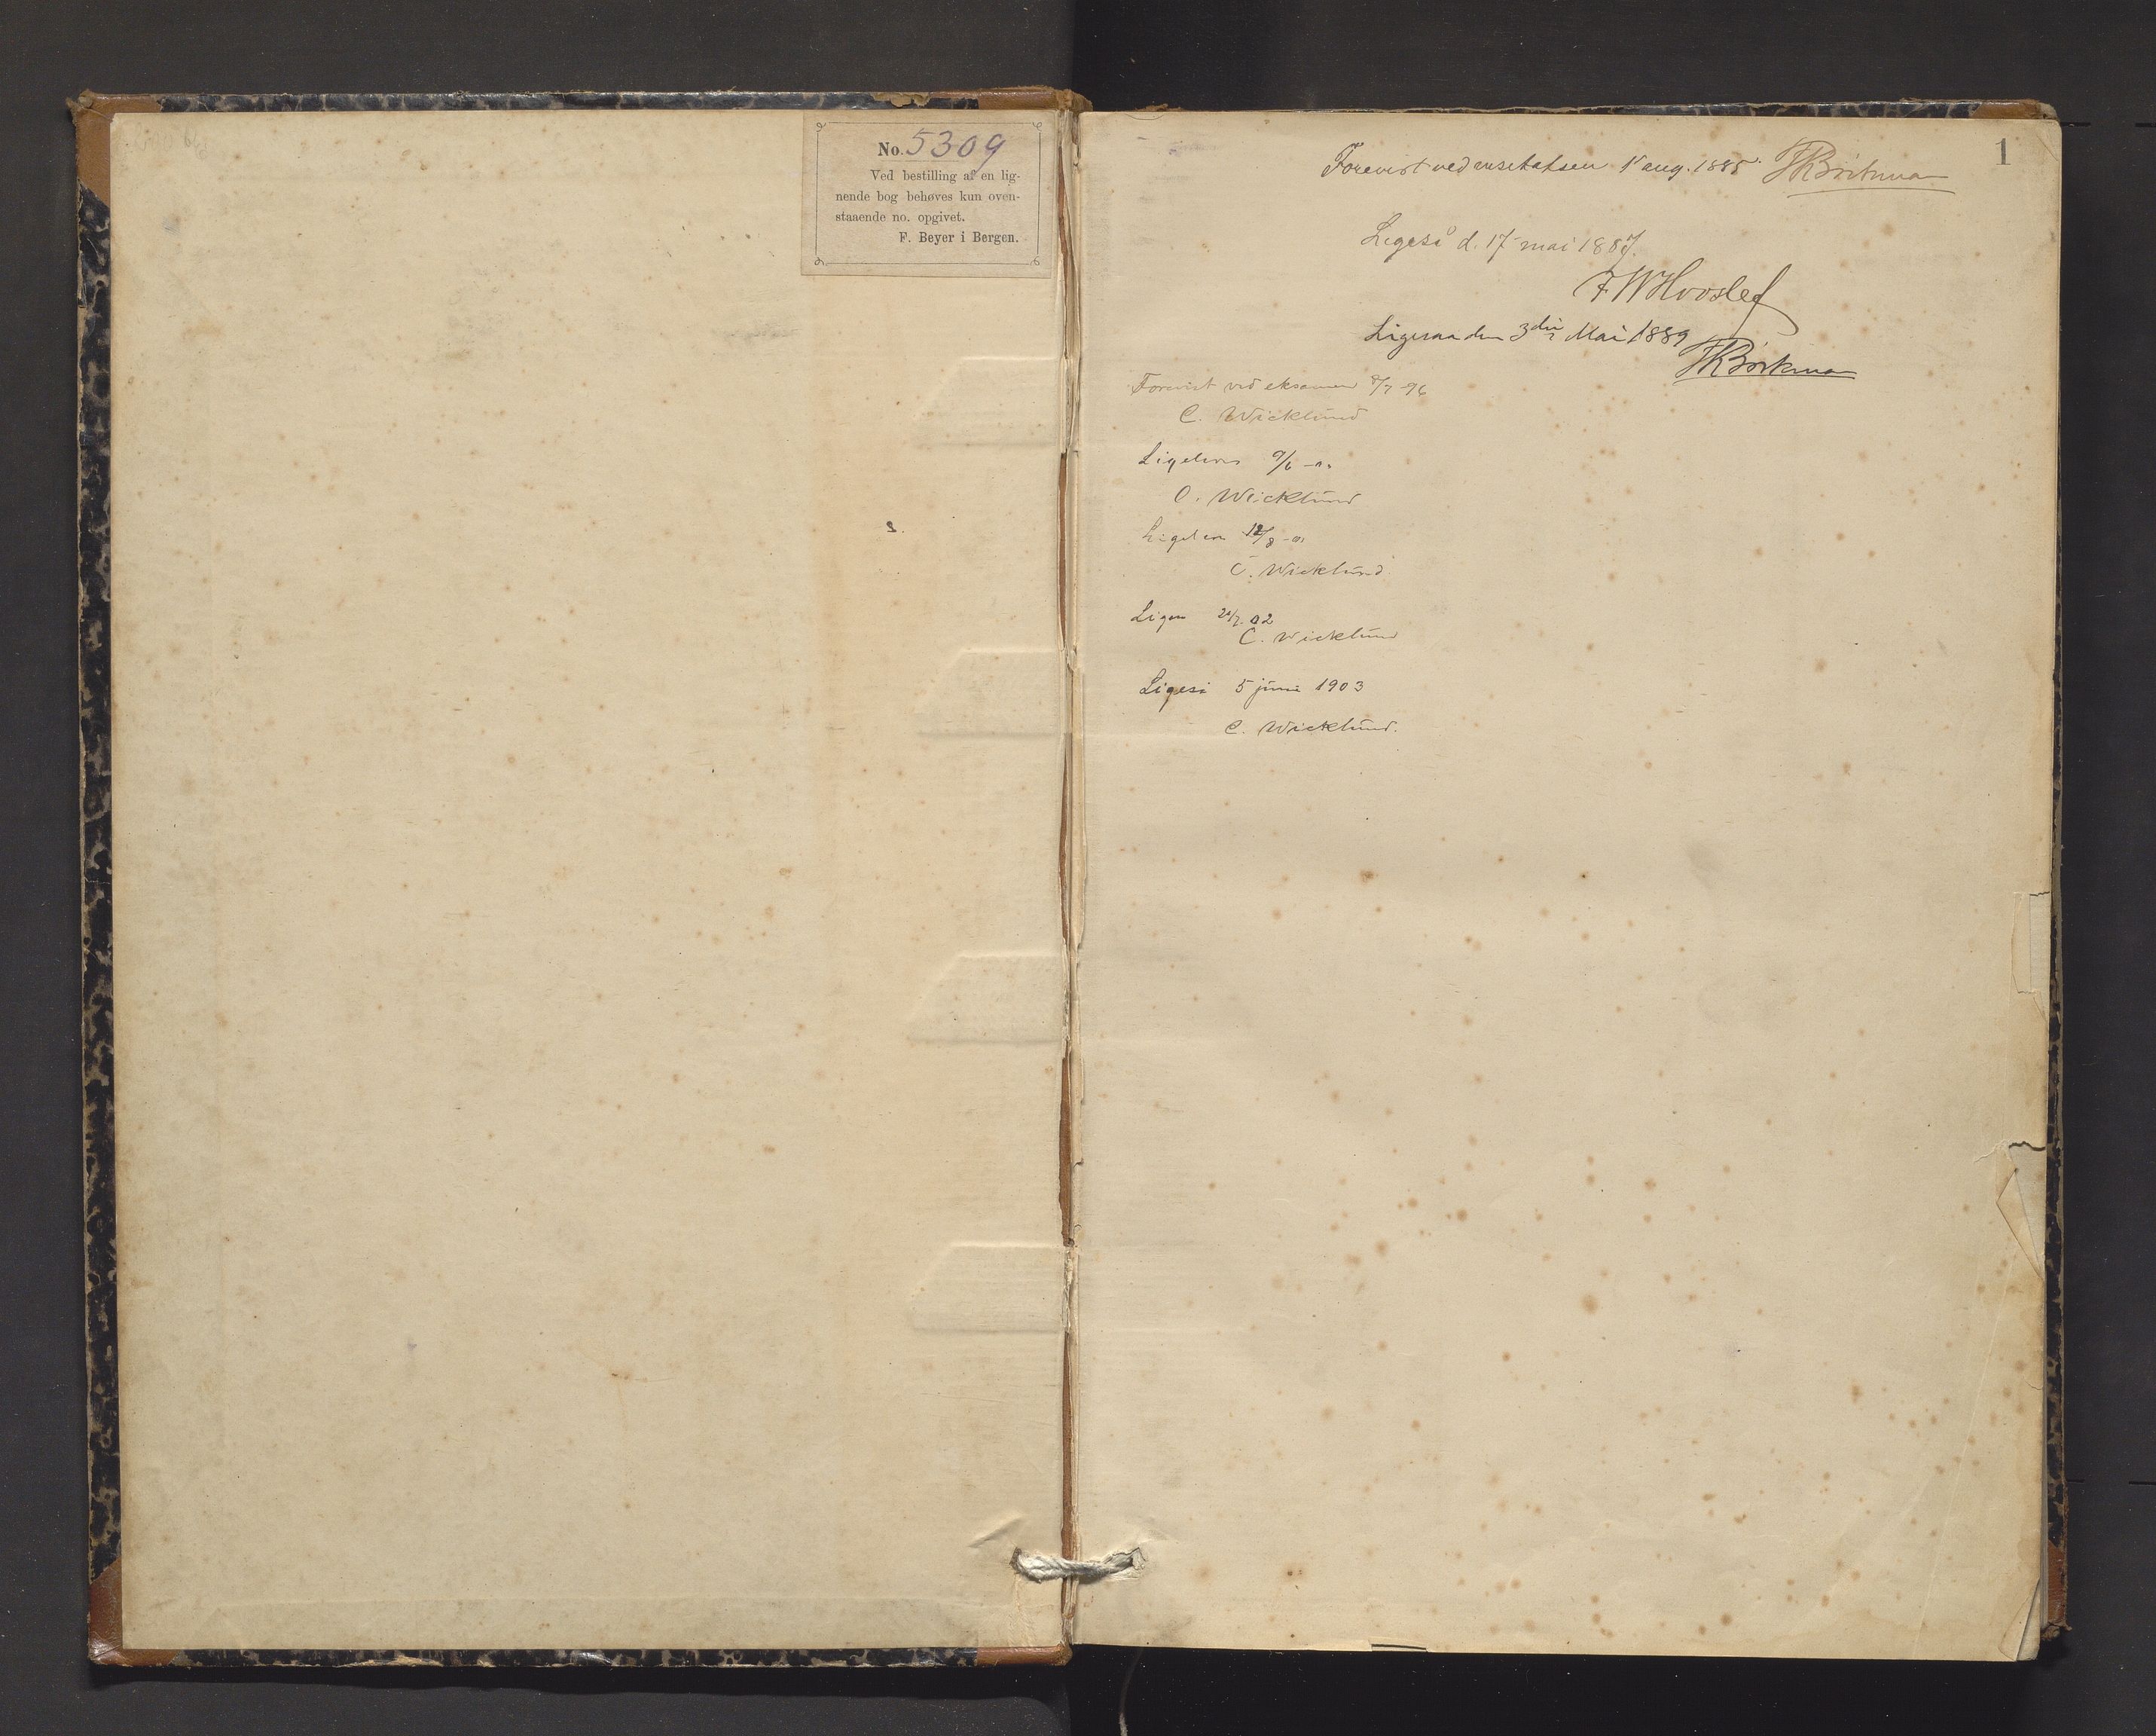 No. 5309
Ved bestilling af en lig-
nende bog behøves kun oven-
staaende no. opgivet.
F. Beyer i Bergen.
1
Forevist ved visitatsen 1 aug. 1885.
Ligeså d. 17 mai 1887.
FWHvoslef
Ligesaa den 3die Mai 1889
Forevist ved eksamen 8/7 -96
C. Wicklund
9/6
C. Wicklund
12/8
C. Wicklund
02
C. Wicklund
Ligeså 5 juni 1903
C. Wicklund.